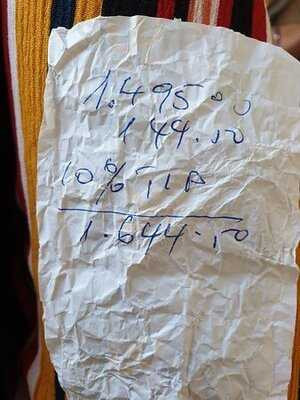 1.495.00
149.50
10% TIP
1.644.50